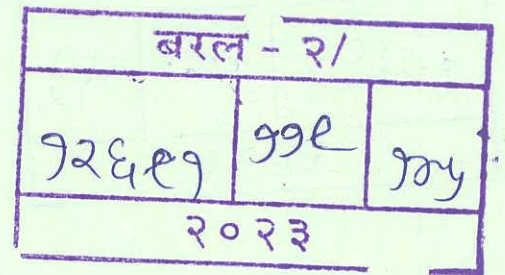 बरल - २/
१२६९१ ११९ १४५
२०२३